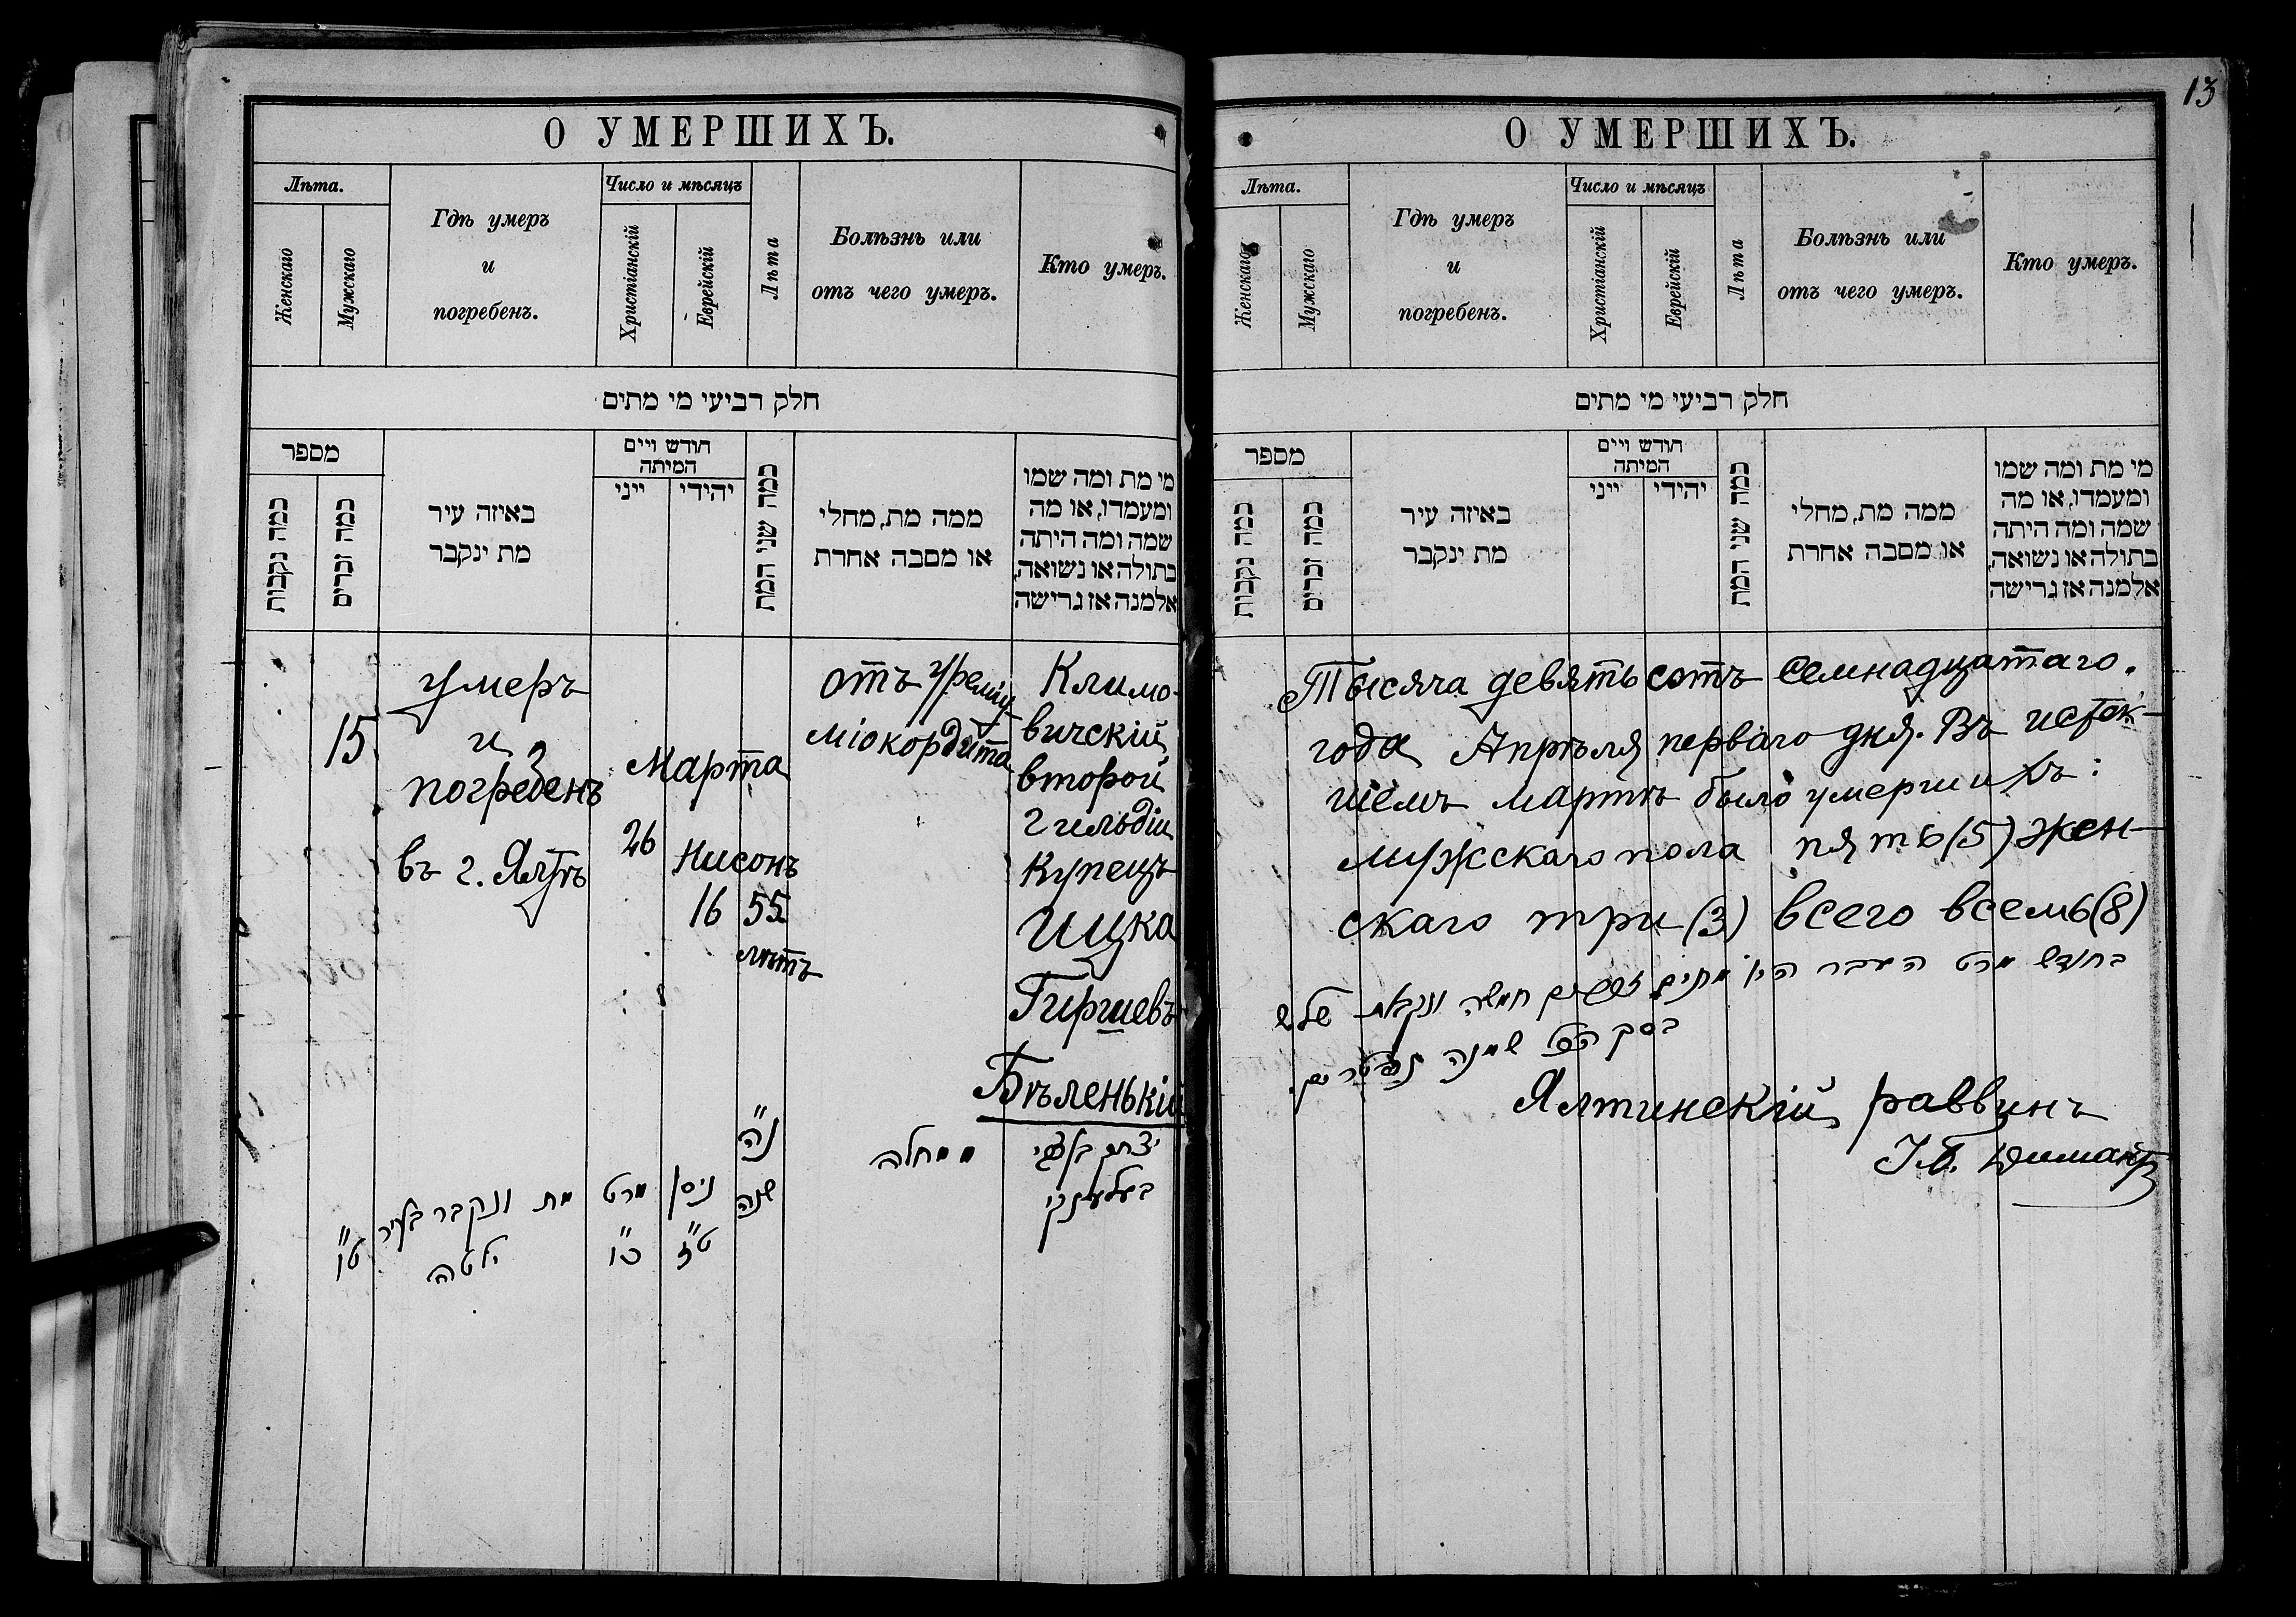 13
О УМЕРШИХЪ.
Лѣта.
Женскаго
Мужскаго
Гдѣ умеръ
и
погребенъ.
Число и мѣсяцъ
Христіанскій
Еврейскій
Лѣта
Болѣзнь или
отъ чего умеръ.
Кто умеръ.
חלק רביעי מי מתים
מספר
כמה נקבות
כמה זכרים
באיזה עיר
מת ינקבר
חודש ויים
המיתה
ייני
יהידי
כמה שני המת
ממה מת, מחלי
או מסבה אחרת
מי מת ומה שמו
ומעמדו, או מה
שמה ומה היתה
בתולה או נשואה,
אלמנה אז גרישה
15
умеръ
и
погребенъ
въ г. Ялтѣ
Марта
26
Нисонъ
16
55
лѣтъ
отъ
міокордита
Климо-
вичскій
второй
гильдіи
купецъ
Ицка
Гиршевъ
Бѣленькій
ט"ו
מת ונקבר בעיר
ילטה
מרט
כ"ו
ניסן
ט"ז
נ"ה
שנה
ממחלה
יצחק
О УМЕРШИХЪ.
Лѣта.
Женскаго
Мужскаго
Гдѣ умеръ
и
погребенъ.
Число и мѣсяцъ
Христіанскій
Еврейскій
Лѣта
Болѣзнь или
отъ чего умеръ.
Кто умеръ.
חלק רביעי מי מתים
מספר
כמה נקבות
כמה זכרים
באיזה עיר
מת ינקבר
חודש ויים
המיתה
ייני
יהידי
כמה שני המת
ממה מת, מחלי
או מסבה אחרת
מי מת ומה שמו
ומעמדו, או מה
שמה ומה היתה
בתולה או נשואה,
אלמנה אז גרישה
Тысяча девятьсотъ семнадцатаго
года Апрѣля перваго дня. Въ истек-
шемъ мартѣ было умершихъ:
мужскаго пола пять (5) жен-
скаго три (3) всего всемь (8)
בחודש מרט העבר היו מתים זכרים חמשה ונקבות שלש
בסך הכל שמנה
Ялтинскій раввинъ